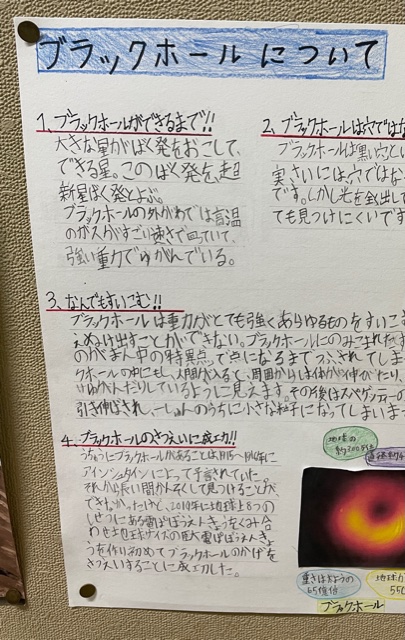 ブラックホールについて
1、ブラックホールができるまで!!
大きな星がばく発をおこして、
できる星。このばく発を、超
新星ばく発とよぶ。
ブラックホールの外がわでは高温
のガスがすごい速さで回っていて、
強い重力でゆがんでいる。
2、ブラックホールは穴ではな
ブラックホールは黒い穴とい
実さいには穴ではな
です。しかし光を全く出して
ても見つけにくいです
3、なんでもすいこむ!!
ブラックホールは重力がとても強くあらゆるものをすいこま
えぬけ出すことができない。ブラックホールにのみこまれたす
のがまん中の特異点で点になるまでつぶされてしま
クホールの中にもし、人間が入ると、周囲からは体が伸びたり、
ゆがんだりしているように見えます。その後はスパゲッティーの
引き伸ばされ、一しゅんのうちに小さな粒子になってしまいま
4、ブラックホールのさつえいに成功!!
うちゅうにブラックホールがあることは1915〜1916年に
アインシュタインによって予言されていた。
それから長い間かんそくして見つけることが
できなかったけど、2019年に地球上8つの
しせつにある電ぱぼうえんきょうをくみ合
わせ地球サイズの巨大電ぱぼうえんきょ
うを作り初めてブラックホールのかげを
さつえいすることに成功した。
地球の
約300万倍
直径約4
重さは太ようの
65億倍
地球か
550
ブラックホール